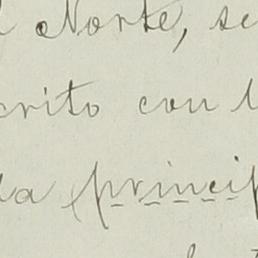 Norte, se
crito con l
la princip